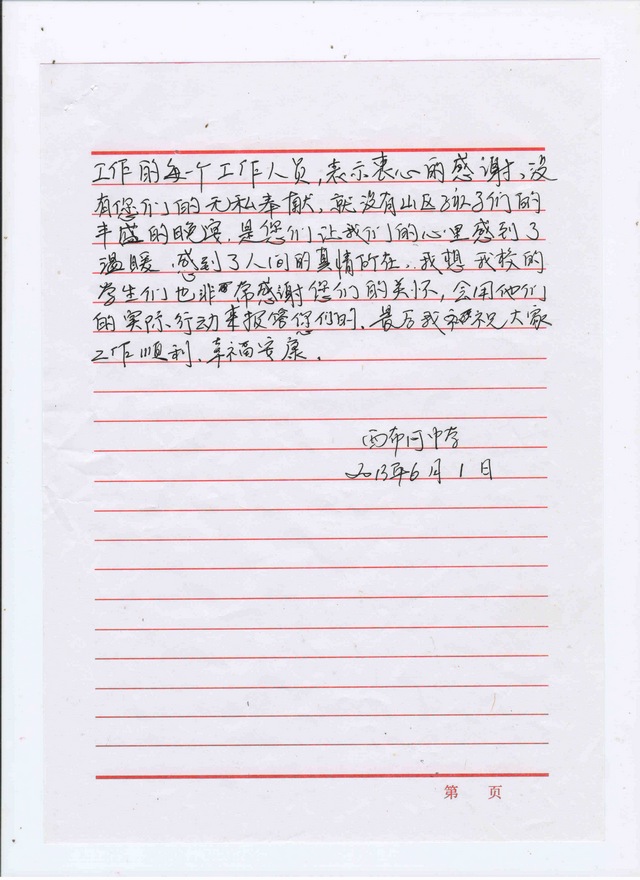 工作的每一个工作人员,表示衷心的感谢,没
有您们的无私奉献,就没有山区孩子们的
丰盛的晚宴,是您们让我们的心里感到了
温暖,感到了人间的真情所在,我想我校的
学生们也非常感谢您们的关怀,会用他们
的实际行动来报答您们的,最后我祝大家
工作顺利,幸福安康.
西布河中学
2013年6月1日
第 页